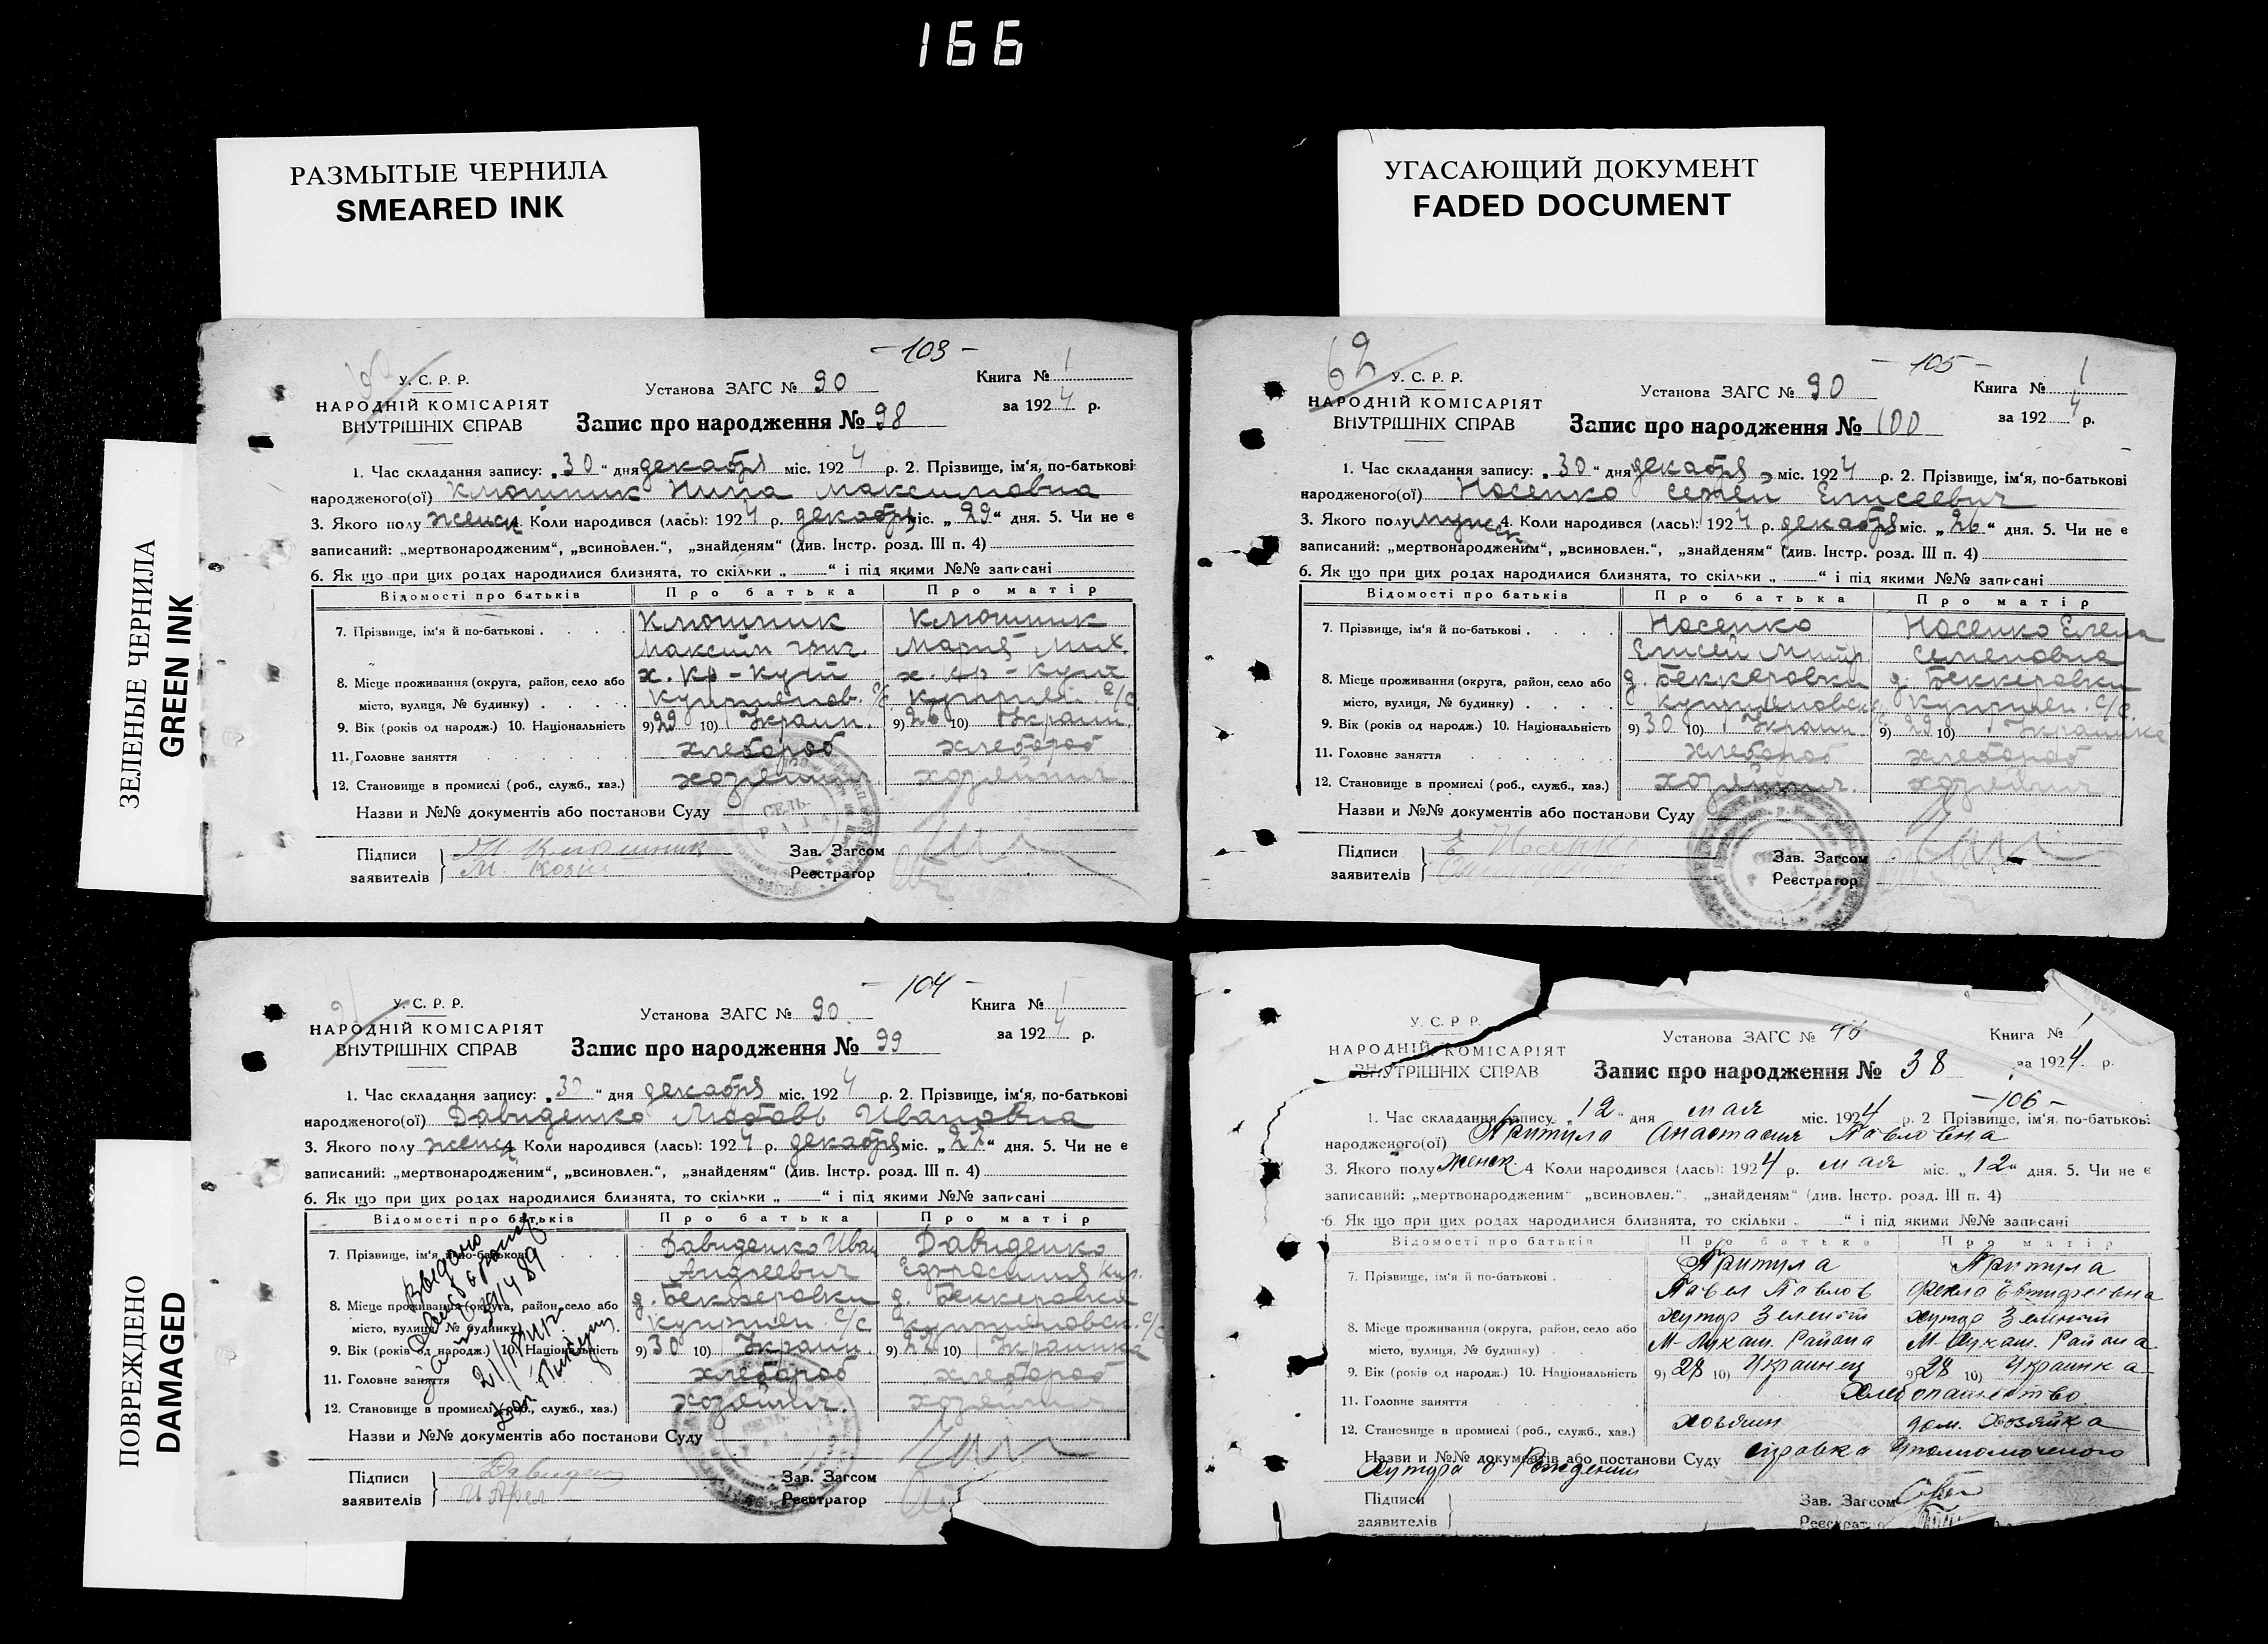 166
РАЗМЫТЫЕ ЧЕРНИЛА
SMEARED INK
УГАСАЮЩИЙ ДОКУМЕНТ
FADED DOCUMENT
ЗЕЛЕНЫЕ ЧЕРНИЛА
GREEN INK
ПОВРЕЖДЕНО
DAMAGED
- 103 -
У. С. Р. Р.
НАРОДНІЙ КОМІСАРІЯТ
ВНУТРІШНІХ СПРАВ
Установа ЗАГС № 90
Книга № 1
Запис про народження № 98
за 1924 р.
1. Час складання запису: „30“ дня декабря міс. 1924 р. 2. Прізвище, ім‘я, по-батькові
народженого(ої) Клюшник Нина Максимовна
3. Якого полу женск 4. Коли народився (лась): 1924 р. декабря міс. „29“ дня. 5. Чи не є
записаний: „мертвонародженим“, „всиновлен.“, „знайденям“ (див. Інстр. розд. III п. 4)
6. Як що при цих родах народилися близнята, то скільки „ “ і під якими №№ записані
Відомості про батьків Про батька Про матір
7. Прізвище, ім‘я й по-батькові . Клюшник Клюшник
Максим Григ. Мария Мих.
8. Місце проживання (округа, район, село або х. Кр-Кут х. Кр-Кут
місто, вулиця, № будинку) . с/с с/с
9. Вік (років од народж.) 10. Національність 9) 29 10) Украин. 9) 26 10) Украин.
11. Головне заняття хлебороб хлебороб
12. Становище в промислі (роб., служб., хаз.) хозяйнич хозяйнич.
Назви и №№ документів або постанови Суду
Підписи заявителів Клюшник
Зав. Загсом
Реєстратор
- 105 -
62
У. С. Р. Р.
НАРОДНІЙ КОМІСАРІЯТ
ВНУТРІШНІХ СПРАВ
Установа ЗАГС № 90
Книга № 1
Запис про народження № 100
за 1924 р.
1. Час складання запису: „30“ дня декабря міс. 1924 р. 2. Прізвище, ім‘я, по-батькові
народженого(ої) Носенко Сергей Елисеевич
3. Якого полу мужск 4. Коли народився (лась): 1924 р. декабря міс. „26“ дня. 5. Чи не є
записаний: „мертвонародженим“, „всиновлен.“, „знайденям“ (див. Інстр. розд. III п. 4)
6. Як що при цих родах народилися близнята, то скільки „ “ і під якими №№ записані
Відомості про батьків Про батька Про матір
7. Прізвище, ім‘я й по-батькові . Носенко Носенко Елена
Елисей Митр. Семеновна
8. Місце проживання (округа, район, село або д. Беккеровки д. Беккеровки
місто, вулиця, № будинку) . с/с.
9. Вік (років од народж.) 10. Національність 9) 30 10) Украин 9) 29 10) Украинка
11. Головне заняття хлебороб хлебороб
12. Становище в промислі (роб., служб., хаз.) хозяйнич. хозяйнич
Назви и №№ документів або постанови Суду
Підписи заявителів Е Носенко
Зав. Загсом
Реєстратор
- 104 -
У. С. Р. Р.
НАРОДНІЙ КОМІСАРІЯТ
ВНУТРІШНІХ СПРАВ
Установа ЗАГС № 90
Книга № 1
Запис про народження № 99
за 1924 р.
1. Час складання запису: „30“ дня декабря міс. 1924 р. 2. Прізвище, ім‘я, по-батькові
народженого(ої) Давиденко Любовь Ивановна
3. Якого полу женск 4. Коли народився (лась): 1924 р. декабря міс. „27“ дня. 5. Чи не є
записаний: „мертвонародженим“, „всиновлен.“, „знайденям“ (див. Інстр. розд. III п. 4)
6. Як що при цих родах народилися близнята, то скільки „ “ і під якими №№ записані
Відомості про батьків Про батька Про матір
7. Прізвище, ім‘я й по-батькові Давиденко Иван Давиденко
Андреевич Ефросиния
8. Місце проживання (округа, район, село або д. Беккеровки д. Беккеровка
місто, вулиця, № будинку) с/с с/с
9. Вік (років од народж.) 10. Національність 9) 30 10) Украин. 9) 10) Украинка
11. Головне заняття хлебороб хлебороб
12. Становище в промислі (роб., служб., хаз.) хозяйнич. хозяйнич
Выдано
Назви и №№ документів або постанови Суду
Підписи заявителів
Зав. Загсом
Реєстратор
У. С. Р. Р.
НАРОДНІЙ КОМІСАРІЯТ
ВНУТРІШНІХ СПРАВ
Установа ЗАГС № 46
Книга № 1
Запис про народження № 38
за 1924 р.
- 106 -
1. Час складання запису „12“ дня мая міс. 1924 р. 2 Прізвище, ім‘я, по-батькові
народженого(ої) Притула Анастасия Павловна
3. Якого полу Женск. 4 Коли народився (лась): 1924 р. мая міс. „12“ дня. 5. Чи не є
записаний: „мертвонародженим“ „всиновлен.“, „знайденям“ (див. Інстр. розд. III п. 4)
6. Як що при цих родах народилися близнята, то скільки “ і під якими №№ записані
Відомості про батьків Про батька Про матір
7. Прізвище, ім‘я й по-батькові . Притула Притула
Павел Павлов Фекла Евтифеевна
8. Місце проживання (округа, район, село або хутор Зеленый хутор Зеленый
місто, вулиця, № будинку) М-Лукаш. Района М-Лукаш. Района
9. Вік (років од народж.) 10. Національність 9) 28 10) Украинец 9) 28 10) Украинка
11. Головне заняття Хлебопашество
12. Становище в промислі (роб., служб., хаз.) хозяин дом. Хозяйка
Назви и №№ документів або постанови Суду справка Уполномоченого
Хутора о Рождении
Підписи заявителів
Зав. Загсом